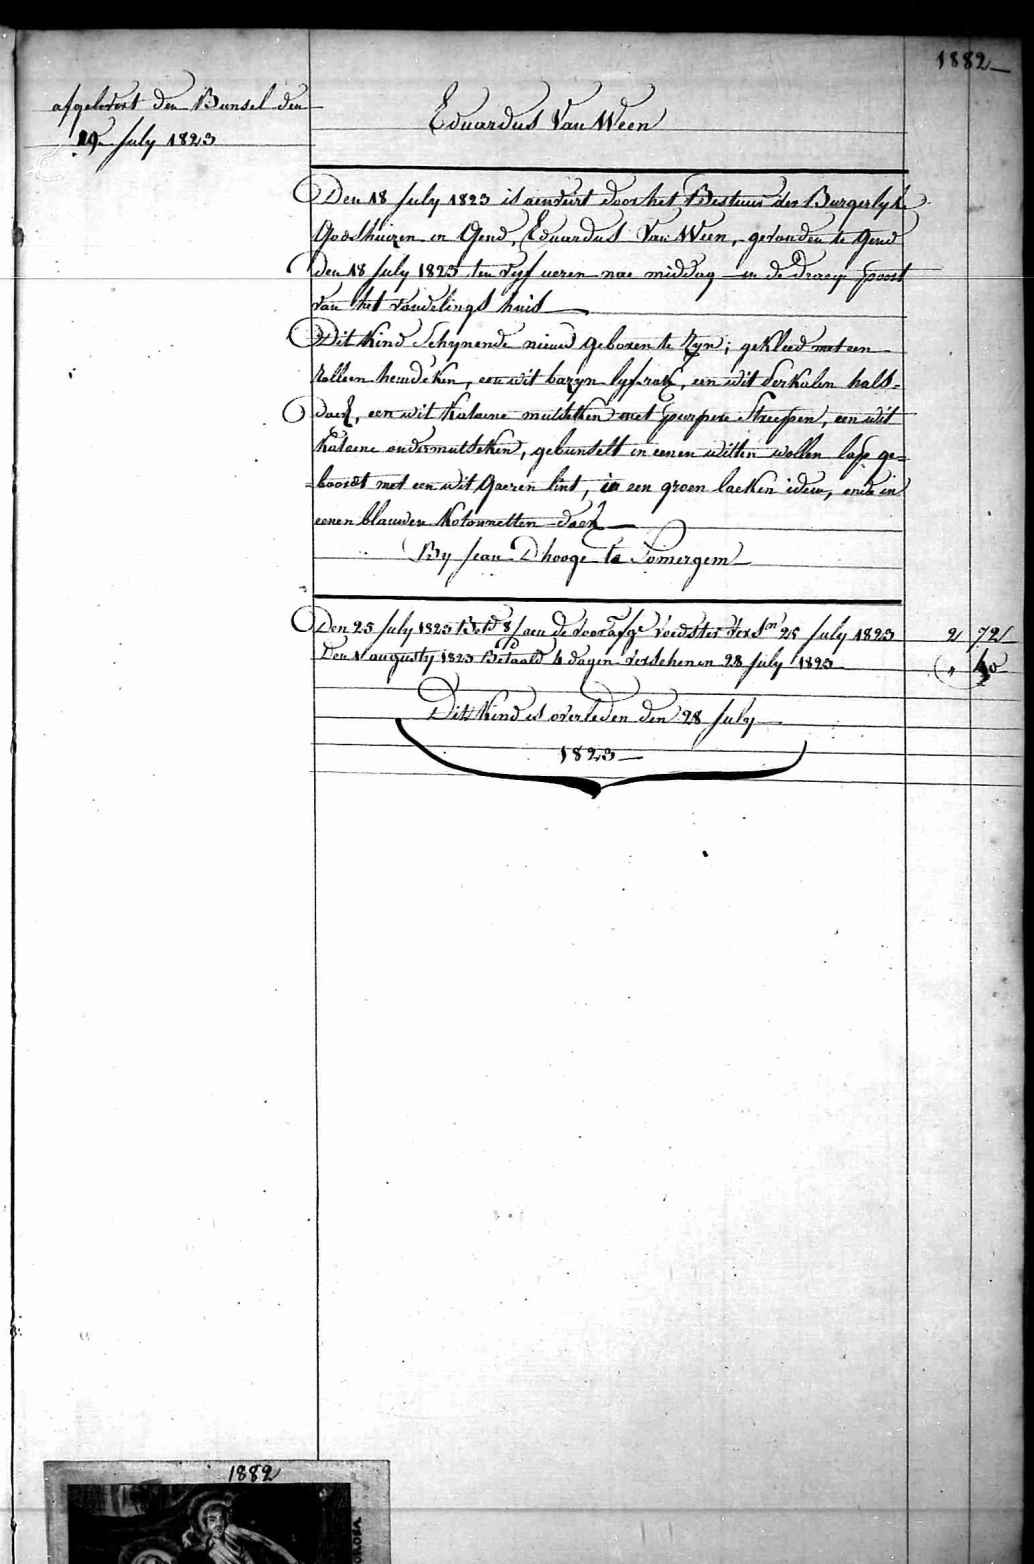 1882
afgelevert den Bunsel den
19 July 1823
Eduardus Van Ween
Den 18 July 1823 is aenveirt door het Bestuur der Burgerlyke
Godshuizen in Gend, Eduardus Van Ween, gevonden te Gend
den 18 July 1823 ten vyf ueren nae middag in de Draey poort
van het vondelings huis
Dit Kind Schynende nieuw geboren te Zyn; gekleed met een
Zolleen hemdeken, een wit bazyn lyf-rok, een wit Serkulen hals-
doek, een wit Katoene mutsken met purpere Streepen, een wit
Katoene ondermutseken, gebunselt in eenen witten wollen lap ge-
boordt met een wit Gaeren lint, in een groen laeken idem, ende in
eenen blauwen Kotonnetten doek
By Jean Dhooge te Somergem
Den 25 July 1823 Betd 8/m aen de voorafge voedster versn 25 July 1823 2 72
Den 1 augusty 1823 Betaeld 4 dagen verschenen 28 July 1823 " 40
Dit Kind is overleden den 28 July
1823
1882